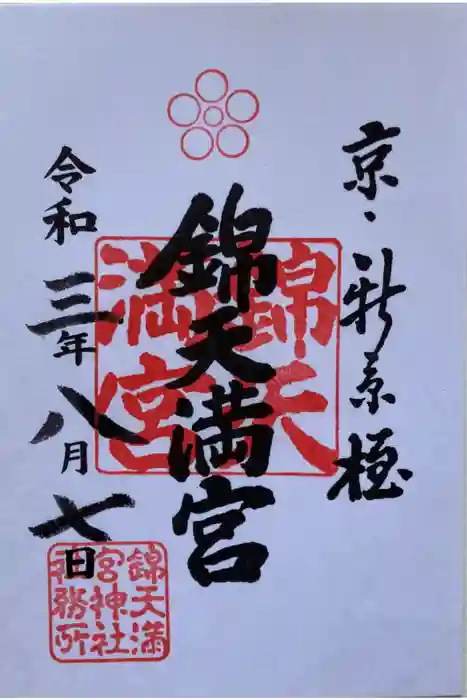 京・新京極
錦天満宮
令和三年八月七日
錦天
満宮
錦天満
宮神社
神務所